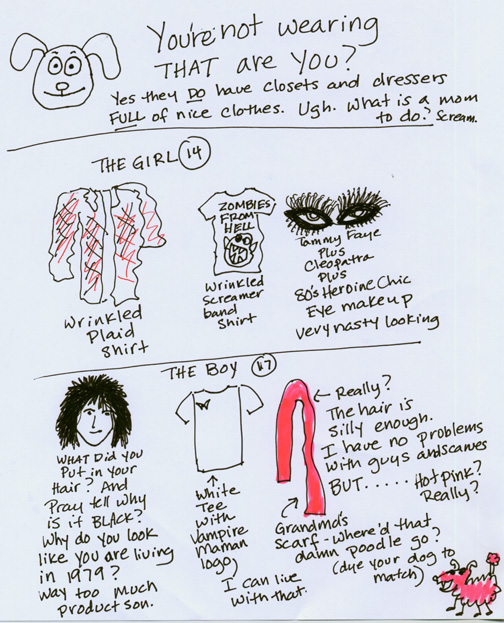 You're not wearing
THAT are you?
Yes they DO have closets and dressers
FULL of nice clothes. Ugh. What is a mom
to do? Scream.
THE GIRL 14
ZOMBIES
FROM
HELL
Wrinkled
Plaid
Shirt
Wrinkled
Screamer
band
Shirt
Tammy Faye
Plus
Cleopatra
Plus
80's Heroine Chic
Eye makeup
Very nasty looking
THE BOY 17
WHAT Did you
Put in your
Hair? And
Pray tell why
is it BLACK?
Why do you look
like you are living
in 1979?
Way too much
product son.
White
Tee
with
Vampire
Maman
logo
I can live
with that.
Really?
The hair is
silly enough.
I have no problems
with guys and scarves
BUT..... Hot Pink?
Really?
Grandma's
scarf - Where'd that
damn poodle go?
(dye your dog to
match)